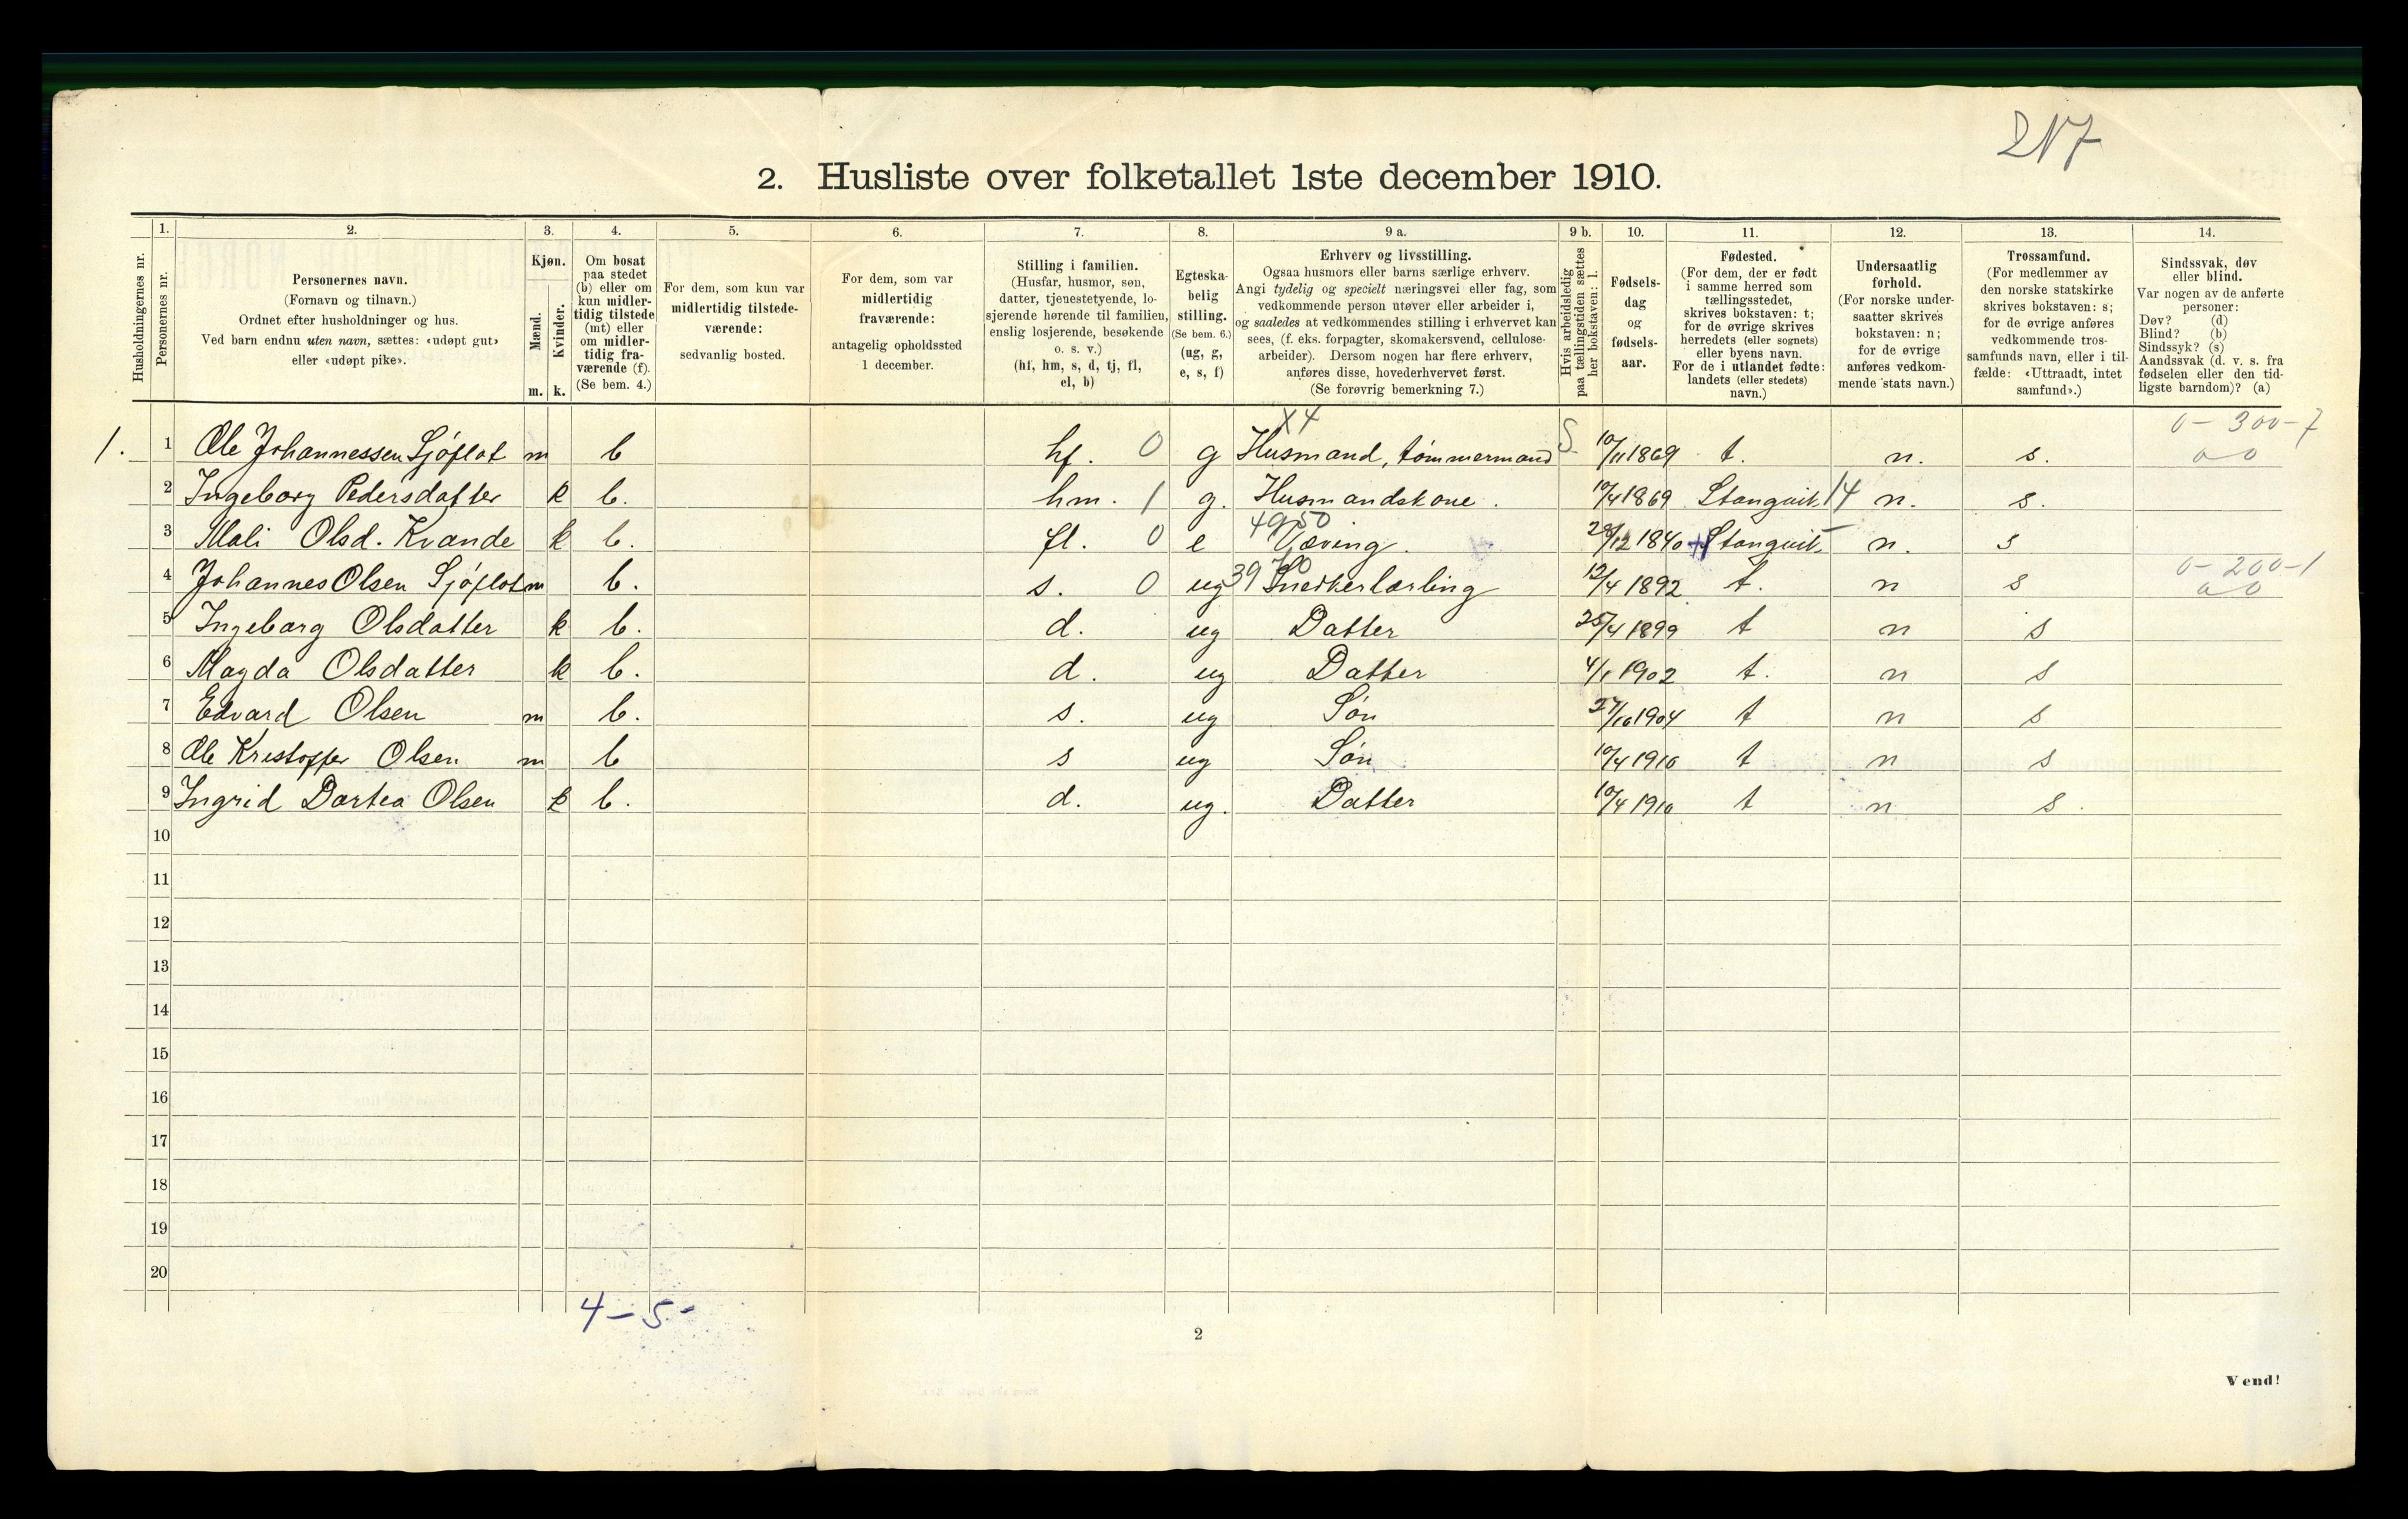 217
2. Husliste over folketallet 1ste december 1910.
Husholdningernes nr.
1.
Personernes nr.
2.
Personernes navn.
(Fornavn og tilnavn.)
Ordnet efter husholdninger og hus.
Ved barn endnu uten navn, sættes: «udøpt gut»
eller «udøpt pike».
3.
Kjøn.
Mænd.
Kvinder.
m. k.
4.
Om bosat
paa stedet
(b) eller om
kun midler-
tidig tilstede
(mt) eller
om midler-
tidig fra-
værende (f).
(Se bem. 4.)
5.
For dem, som kun var
midlertidig tilstede-
værende:
sedvanlig bosted.
6.
For dem, som var
midlertidig
fraværende:
antagelig opholdssted
1 december.
7.
Stilling i familien.
(Husfar, husmor, søn,
datter, tjenestetyende, lo-
sjerende hørende til familien,
enslig losjerende, besøkende
o. s. v.)
(hf, hm, s, d, tj, fl,
el, b)
8.
Egteska-
belig
stilling.
(Se bem. 6.)
(ug, g,
e, s, f)
9 a.
Erhverv og livsstilling.
Ogsaa husmors eller barns særlige erhverv.
Angi tydelig og specielt næringsvei eller fag, som
vedkommende person utøver eller arbeider i,
og saaledes at vedkommendes stilling i erhvervet kan
sees, (f. eks. forpagter, skomakersvend, cellulose-
arbeider). Dersom nogen har flere erhverv,
anføres disse, hovederhvervet først.
(Se forøvrig bemerkning 7.)
9 b.
Hvis arbeidsledig
paa tællingstiden sættes
her bokstaven: l.
10.
Fødsels-
dag
og
fødsels-
aar.
11.
Fødested.
(For dem, der er født
i samme herred som
tællingsstedet,
skrives bokstaven: t;
for de øvrige skrives
herredets (eller sognets)
eller byens navn.
For de i utlandet fødte:
landets (eller stedets)
navn.)
12.
Undersaatlig
forhold.
(For norske under-
saatter skrives
bokstaven: n;
for de øvrige
anføres vedkom-
mende stats navn.)
13.
Trossamfund.
(For medlemmer av
den norske statskirke
skrives bokstaven: s;
for de øvrige anføres
vedkommende tros-
samfunds navn, eller i til-
fælde: «Uttraadt, intet
samfund».)
14.
Sindssvak, døv
eller blind.
Var nogen av de anførte
personer:
Døv? (d)
Blind? (b)
Sindssyk? (s)
Aandssvak (d. v. s. fra
fødselen eller den tid-
ligste barndom)? (a)
X4 0 - 300 - 7
1. 1 Ole Johannessen Sjøflot m b hf. 0 g Husmand, tømmermand S 10/11 1869 t. n. s.
2 Ingeborg Pedersdatter k b. hm. 1 g. Husmandskone. 10/4 1869 Stangvik 14 n. s.
3 Mali Olsd. Kvande k b. fl. 0 e Væving. 28/12 1840 Stangvik n. s
0 - 200 - 1
4 Johannes Olsen Sjøflot m b. s. 0 ug 39 70 Snedkerlærling 12/4 1892 t. n s
5 Ingeborg Olsdatter k b. d. ug Datter 25/4 1899 t n s
6 Magda Olsdatter k b. d. ug Datter 4/1 1902 t. n s
7 Edvard Olsen m b. s. ug Søn 27/10 1904 t n s
8 Ole Kristoffer Olsen m b s ug Søn 10/4 1910 t n s
9 Ingrid Dortea Olsen k b. d. ug. Datter 10/4 1910 t n s.
10
11
12
13
14
15
16
17
18
19
20
4 - 5 -
2
Vend!